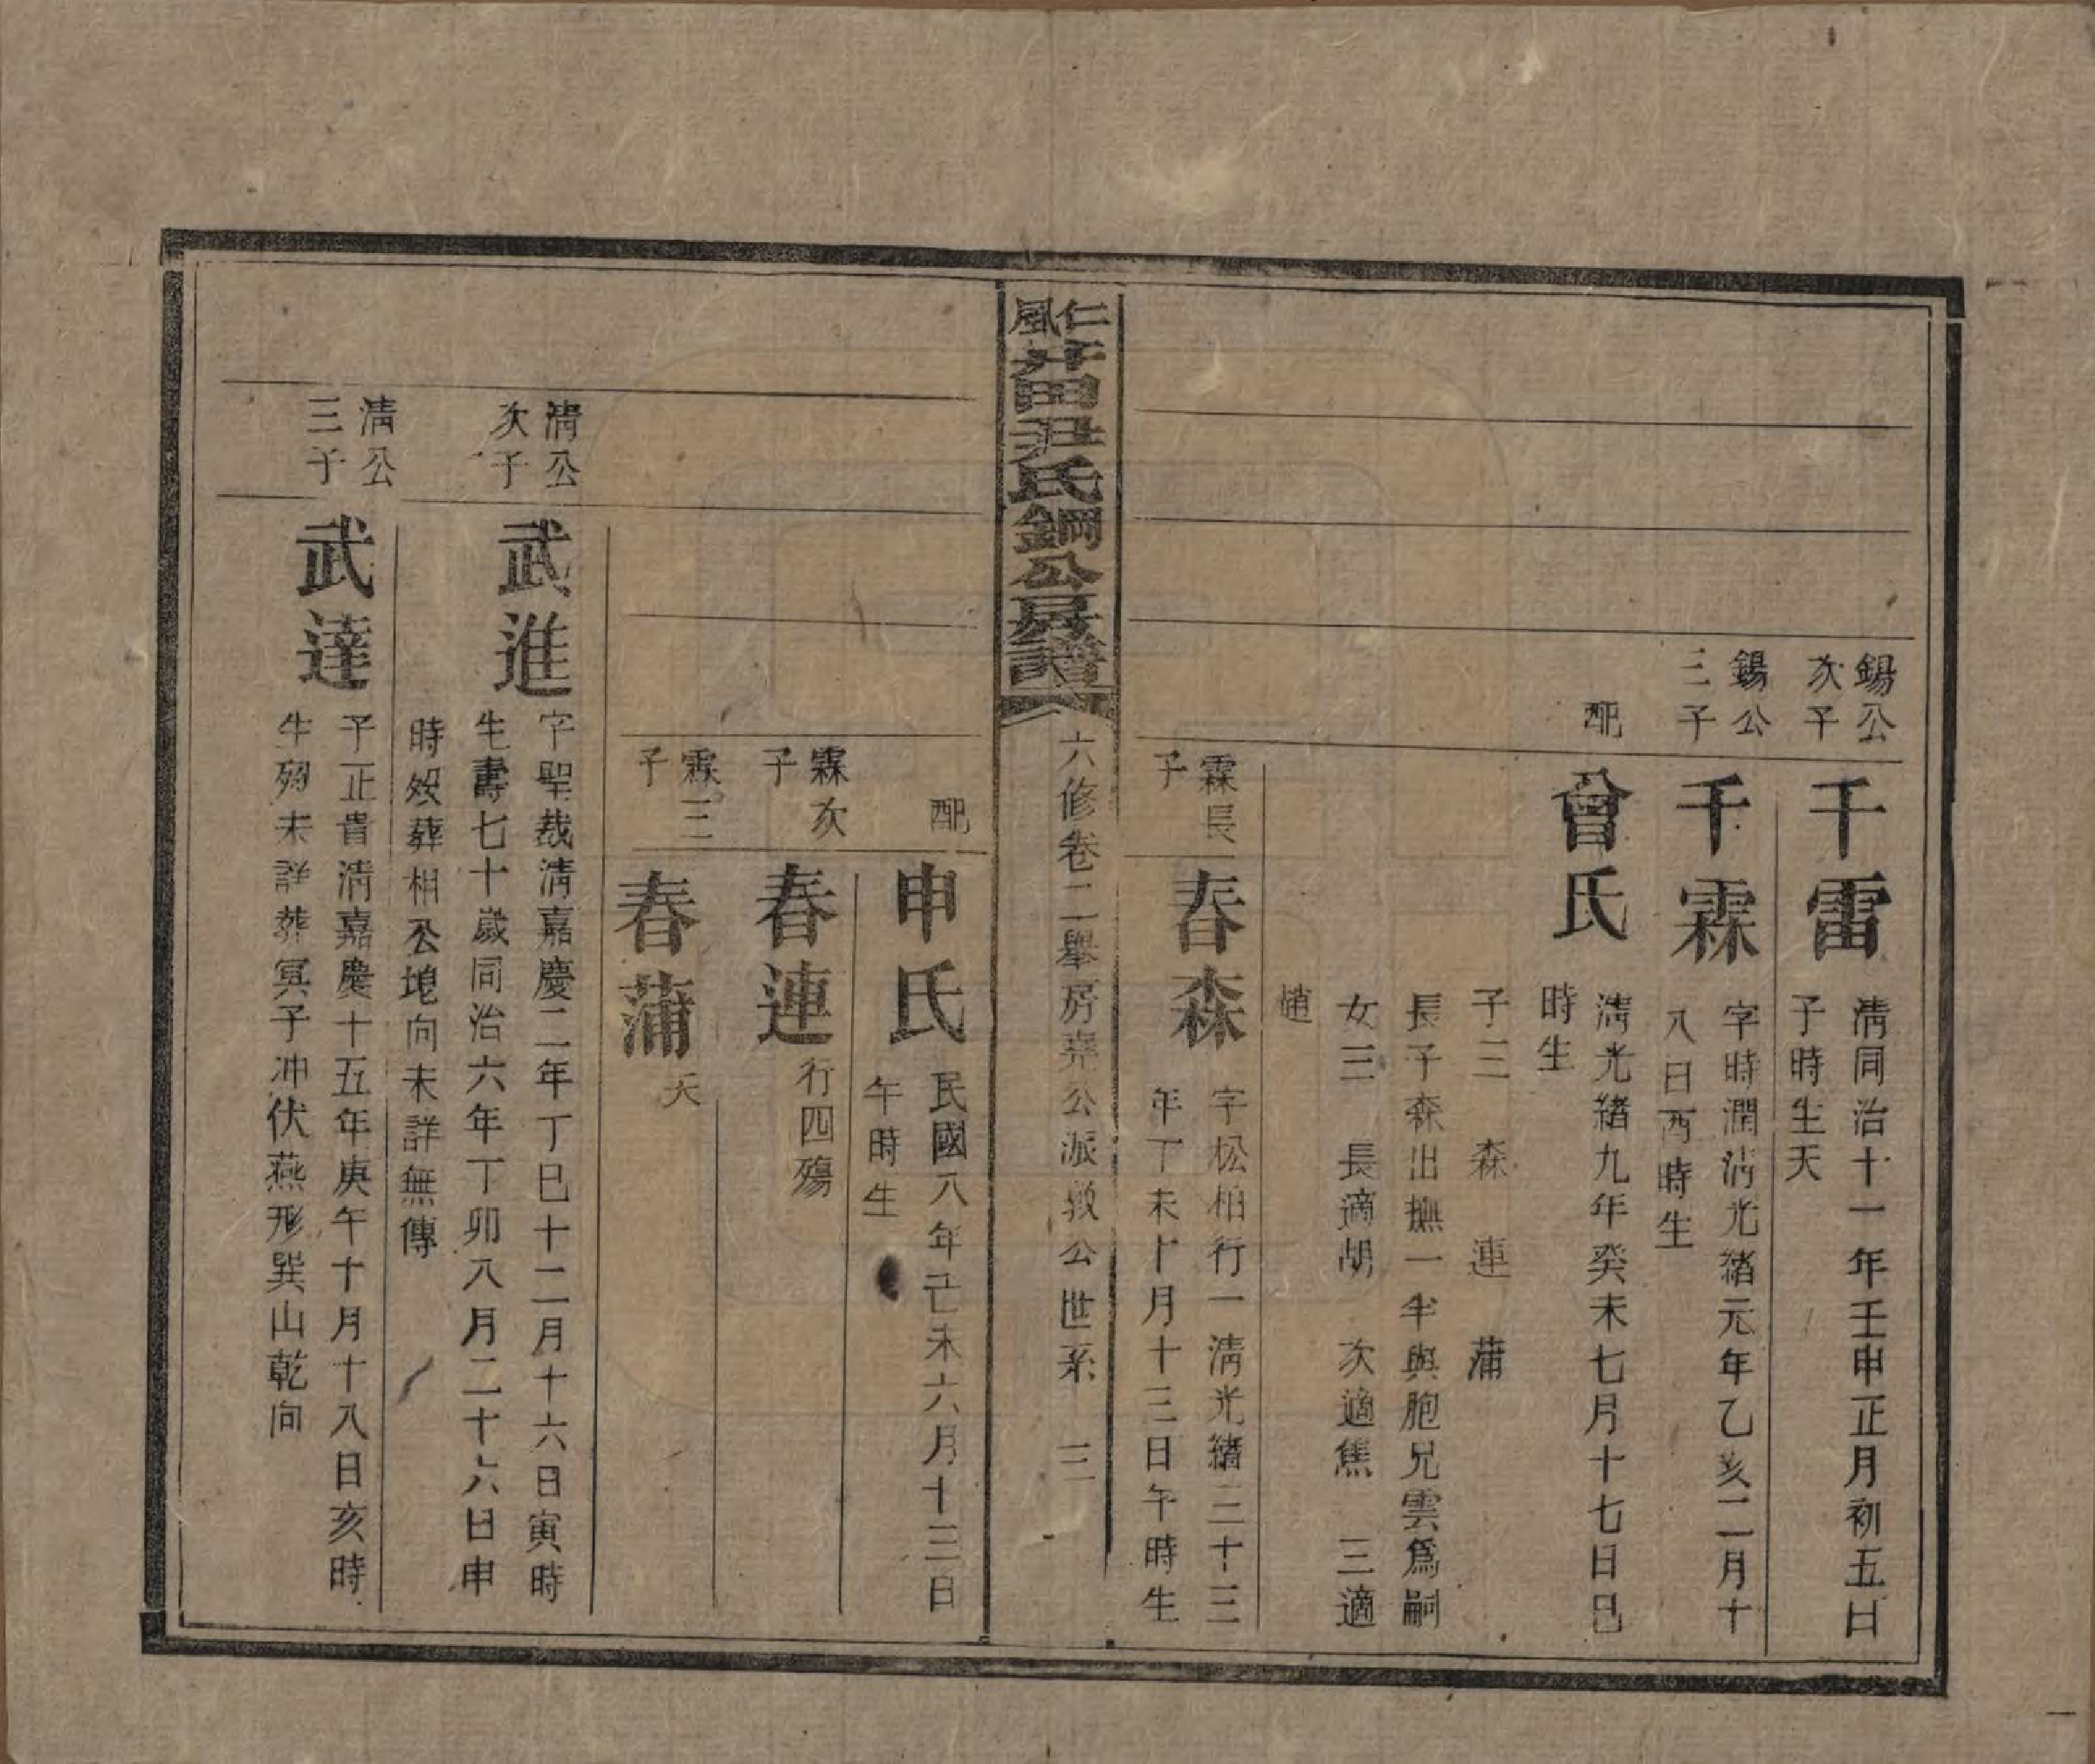 錫公
次子
千雷
清同治十一年壬申正月初五日
子時生夭
錫公
三子
千霖
字時潤清光緒元年乙亥二月十
八日酉時生
配
曾氏
清光緒九年癸未七月十七日巳
時生
子三 森 連 蒲
長子森出撫一半與胞兄雲爲嗣
女三 長適胡 次適焦 三適
趙
霖長
子
春森
字松柏行一清光緒三十三
年丁未十月十三日午時生
仁風
田尹氏鋼公房譜
六修卷二舉房堯公派 公世系 三
配
申氏
民國八年己未六月十三日
午時生
霖次
子
春連
行四殤
霖三
子
春蒲
夭
清公
次子
武進
字聖哉清嘉慶二年丁巳十二月十六日寅時
生壽七十歲同治六年丁卯八月二十六日申
時歿葬相公 向未詳無傳
清公
三子
武達
字正貴清嘉慶十五年庚午十月十八日亥時
生歿未詳葬冥子冲伏燕形巽山乾向